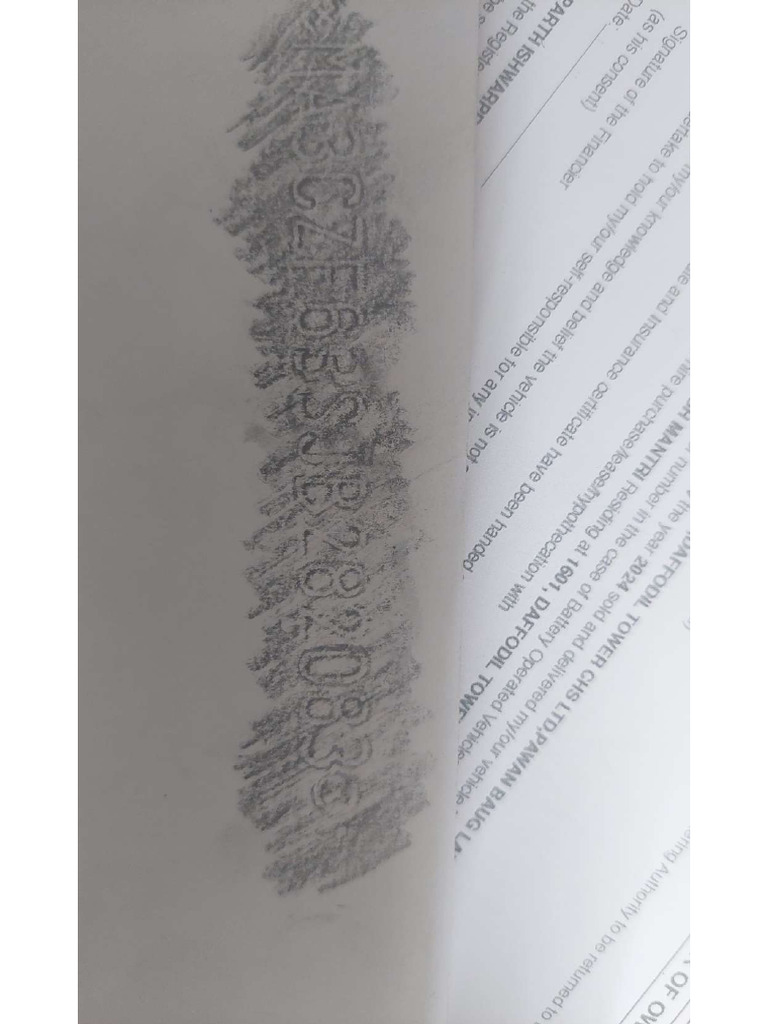 MA3CZF63SJB282083
OF OW
Authority to be returned to
DAFFODIL TOWER CHS LTD,PAWAN BAUG
the year 2024 sold and delivered my/our vehicle
number in the case of Battery Operated Vehicle
MANTRI Residing at 1601, DAFFODIL TOWE
hire purchase/lease/hypothecation with
and insurance certificate have been handed
my/our knowledge and belief the vehicle is not
to hold my/our self-responsible for any
Signature of the Financier
(as his consent)
Date
PARTH ISHWARPR
the Registe